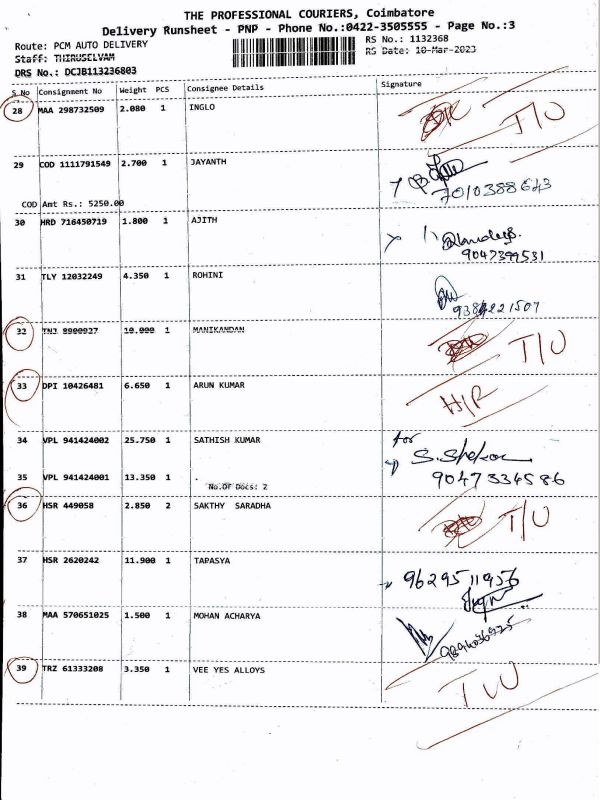 THE PROFESSIONAL COURIERS, Coimbatore
Delivery Runsheet - PNP - Phone No.:0422-3505555 - Page No.:3
Route: PCM AUTO DELIVERY
RS No.: 1132368
Staff: THIRUSELVAM
RS Date: 10-Mar-2023
DRS No.: DCJB113236803
S No Consignment No Weight PCS Consignee Details Signature
28 MAA 298732509 2.080 1 INGLO T/U
29 COD 1111791549 2.700 1 JAYANTH
7010388643
COD Amt Rs.: 5250.00
30 HRD 716450719 1.800 1 AJITH
9047399531
31 TLY 12032249 4.350 1 ROHINI
32 TNJ 8900927 10.000 1 MANIKANDAN T/U
33 DPI 10426481 6.650 1 ARUN KUMAR
34 VPL 941424002 25.750 1 SATHISH KUMAR for
35 VPL 941424001 13.350 1
No.OF Docs: 2
9047334586
36 HSR 449058 2.850 2 SAKTHY SARADHA T/U
37 HSR 2620242 11.900 1 TAPASYA
9629511956
38 MAA 570651025 1.500 1 MOHAN ACHARYA
39 TRZ 61333208 3.350 1 VEE YES ALLOYS